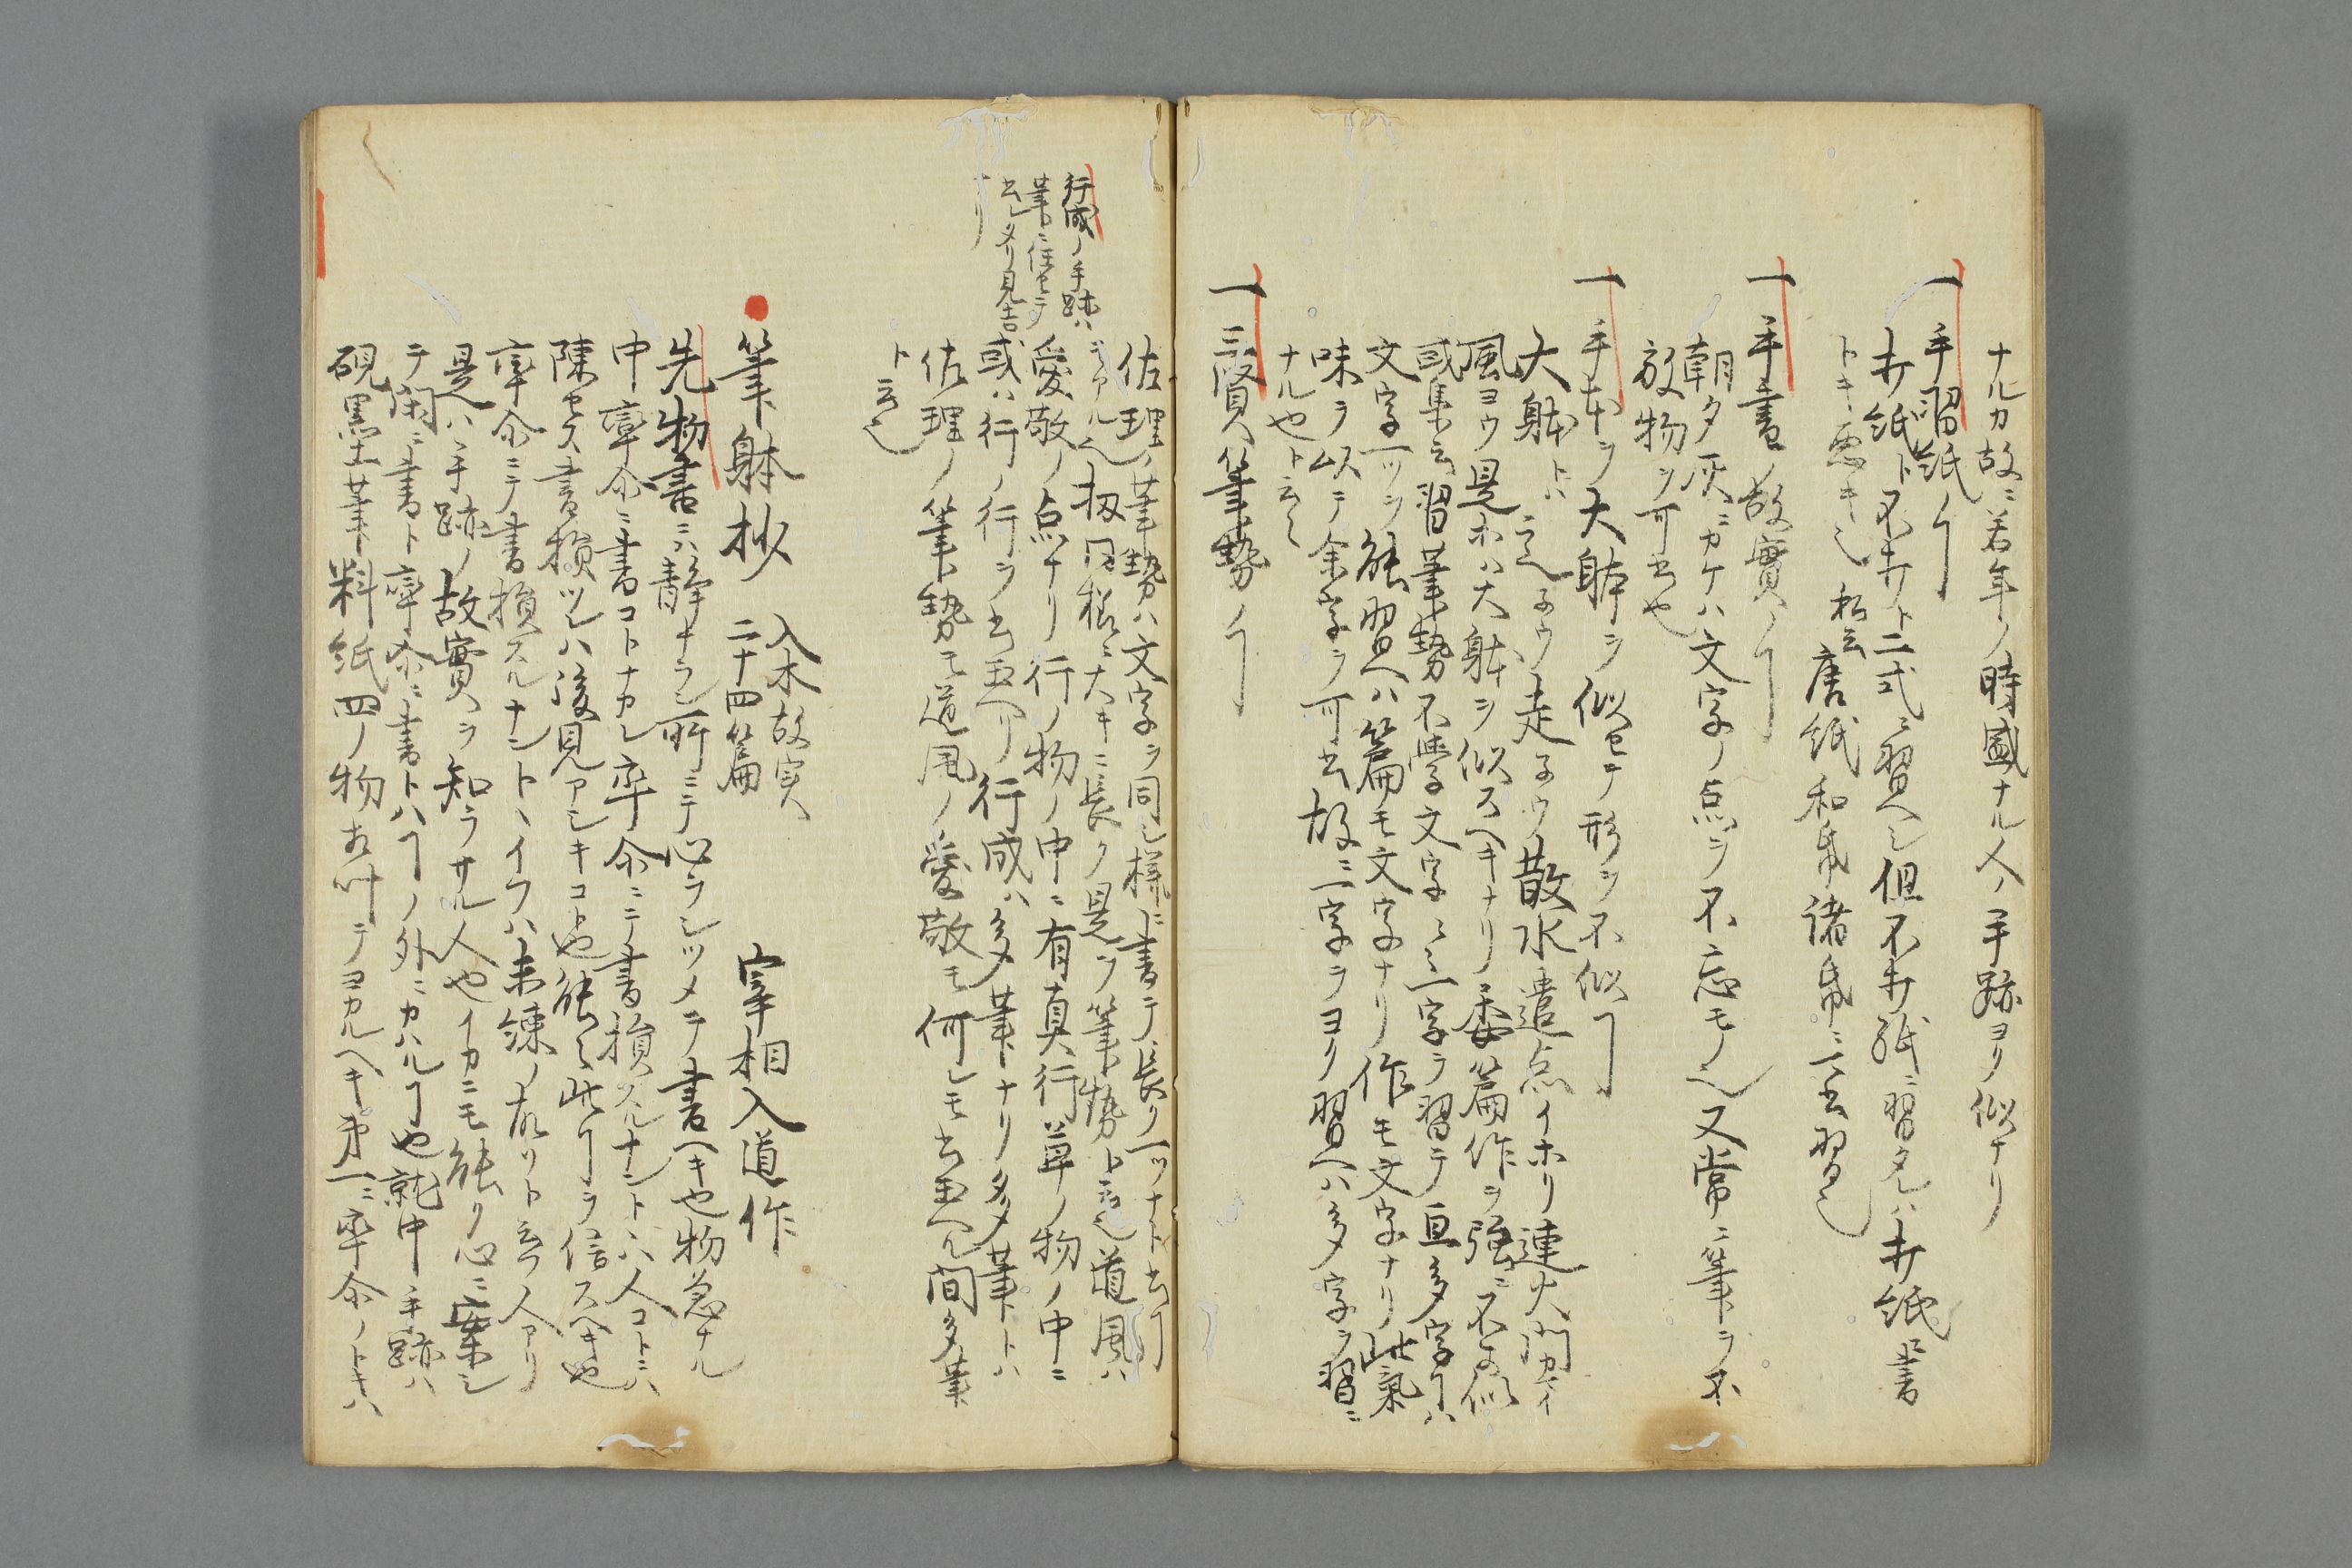 ナルカ故ニ若年ノ時盛ナル人ノ手跡ヨリ似ナリ
一手習紙ノヿ
打紙ト不打ト二式ニ習ヘシ但不打紙ニ習タレハ打紙ニ書
トキ悪キ也 私云 唐紙和帋諸帋ニ可書習也
一手書ノ故實ノヿ
朝夕灰ニカケハ文字ノ点ヲ不忘モノ也又常ニ筆ヲ不
放物ヲ可書也
一手本ヲ大躰ヲ似セテ形ヲ不似ヿ
大躰トハ 走 散水遣点イホリ連火
風ヨウ是ホハ大躰ヲ似スヘキナリ委篇作ヲ強ニ不可似
或集云習筆勢不學文字云云一字ヲ習テ亘多字ヿハ
文字一ツヲ能習ヘハ篇モ文字ナリ作モ文字ナリ此氣
味ヲ以テ余字ヲ可書故ニ一字ヲヨク習ヘハ多字ヲ習ニ
ナル也ト云也
一三賢ノ筆勢ノヿ
佐理ノ筆勢ハ文字ヲ同シ様ニ書テ長ク一ツナト書ヿ
ニアル也 同様ニ大キニ長ク是ヲ筆勢ト云也道風ハ
愛敬ノ点ナリ行ノ物ノ中ニ有真行草ノ物ノ中ニ
或ハ行ノ行ヲ書玉ヘリ行成ハ多筆ナリ多筆トハ
行成ノ手跡ハ
筆ニ任セテ
書シタリ見吉
ナリ
佐理ノ筆勢モ道風ノ愛敬モ何レモ書玉ヘル間多筆
ト云也
筆躰抄 入木故実 二十四篇 宰相入道作
先物書ニハ静ナラン所ニテ心ヲシツメテ書ヘキ也物忩ナル
中率尓ニ書コトナカレ率尓ニテ書損スルナントハ人コトニハ
陳セス書損ツレハ後見アシキコト也能々此ヿヲ信スヘキ也
率尓ニテ書損スルナントヽイフハ未練ノ故リト云フ人アリ
是ハ手跡ノ故實ヲ知ラサル人也イカニモ能ク心ニ案シ
テ閑ニ書ト率尓ニ書トハヿノ外ニカハルヿ也就中手跡ハ
硯墨筆料紙四ノ物お叶テヨカルヘキ第一ニ率尓ノトキハ